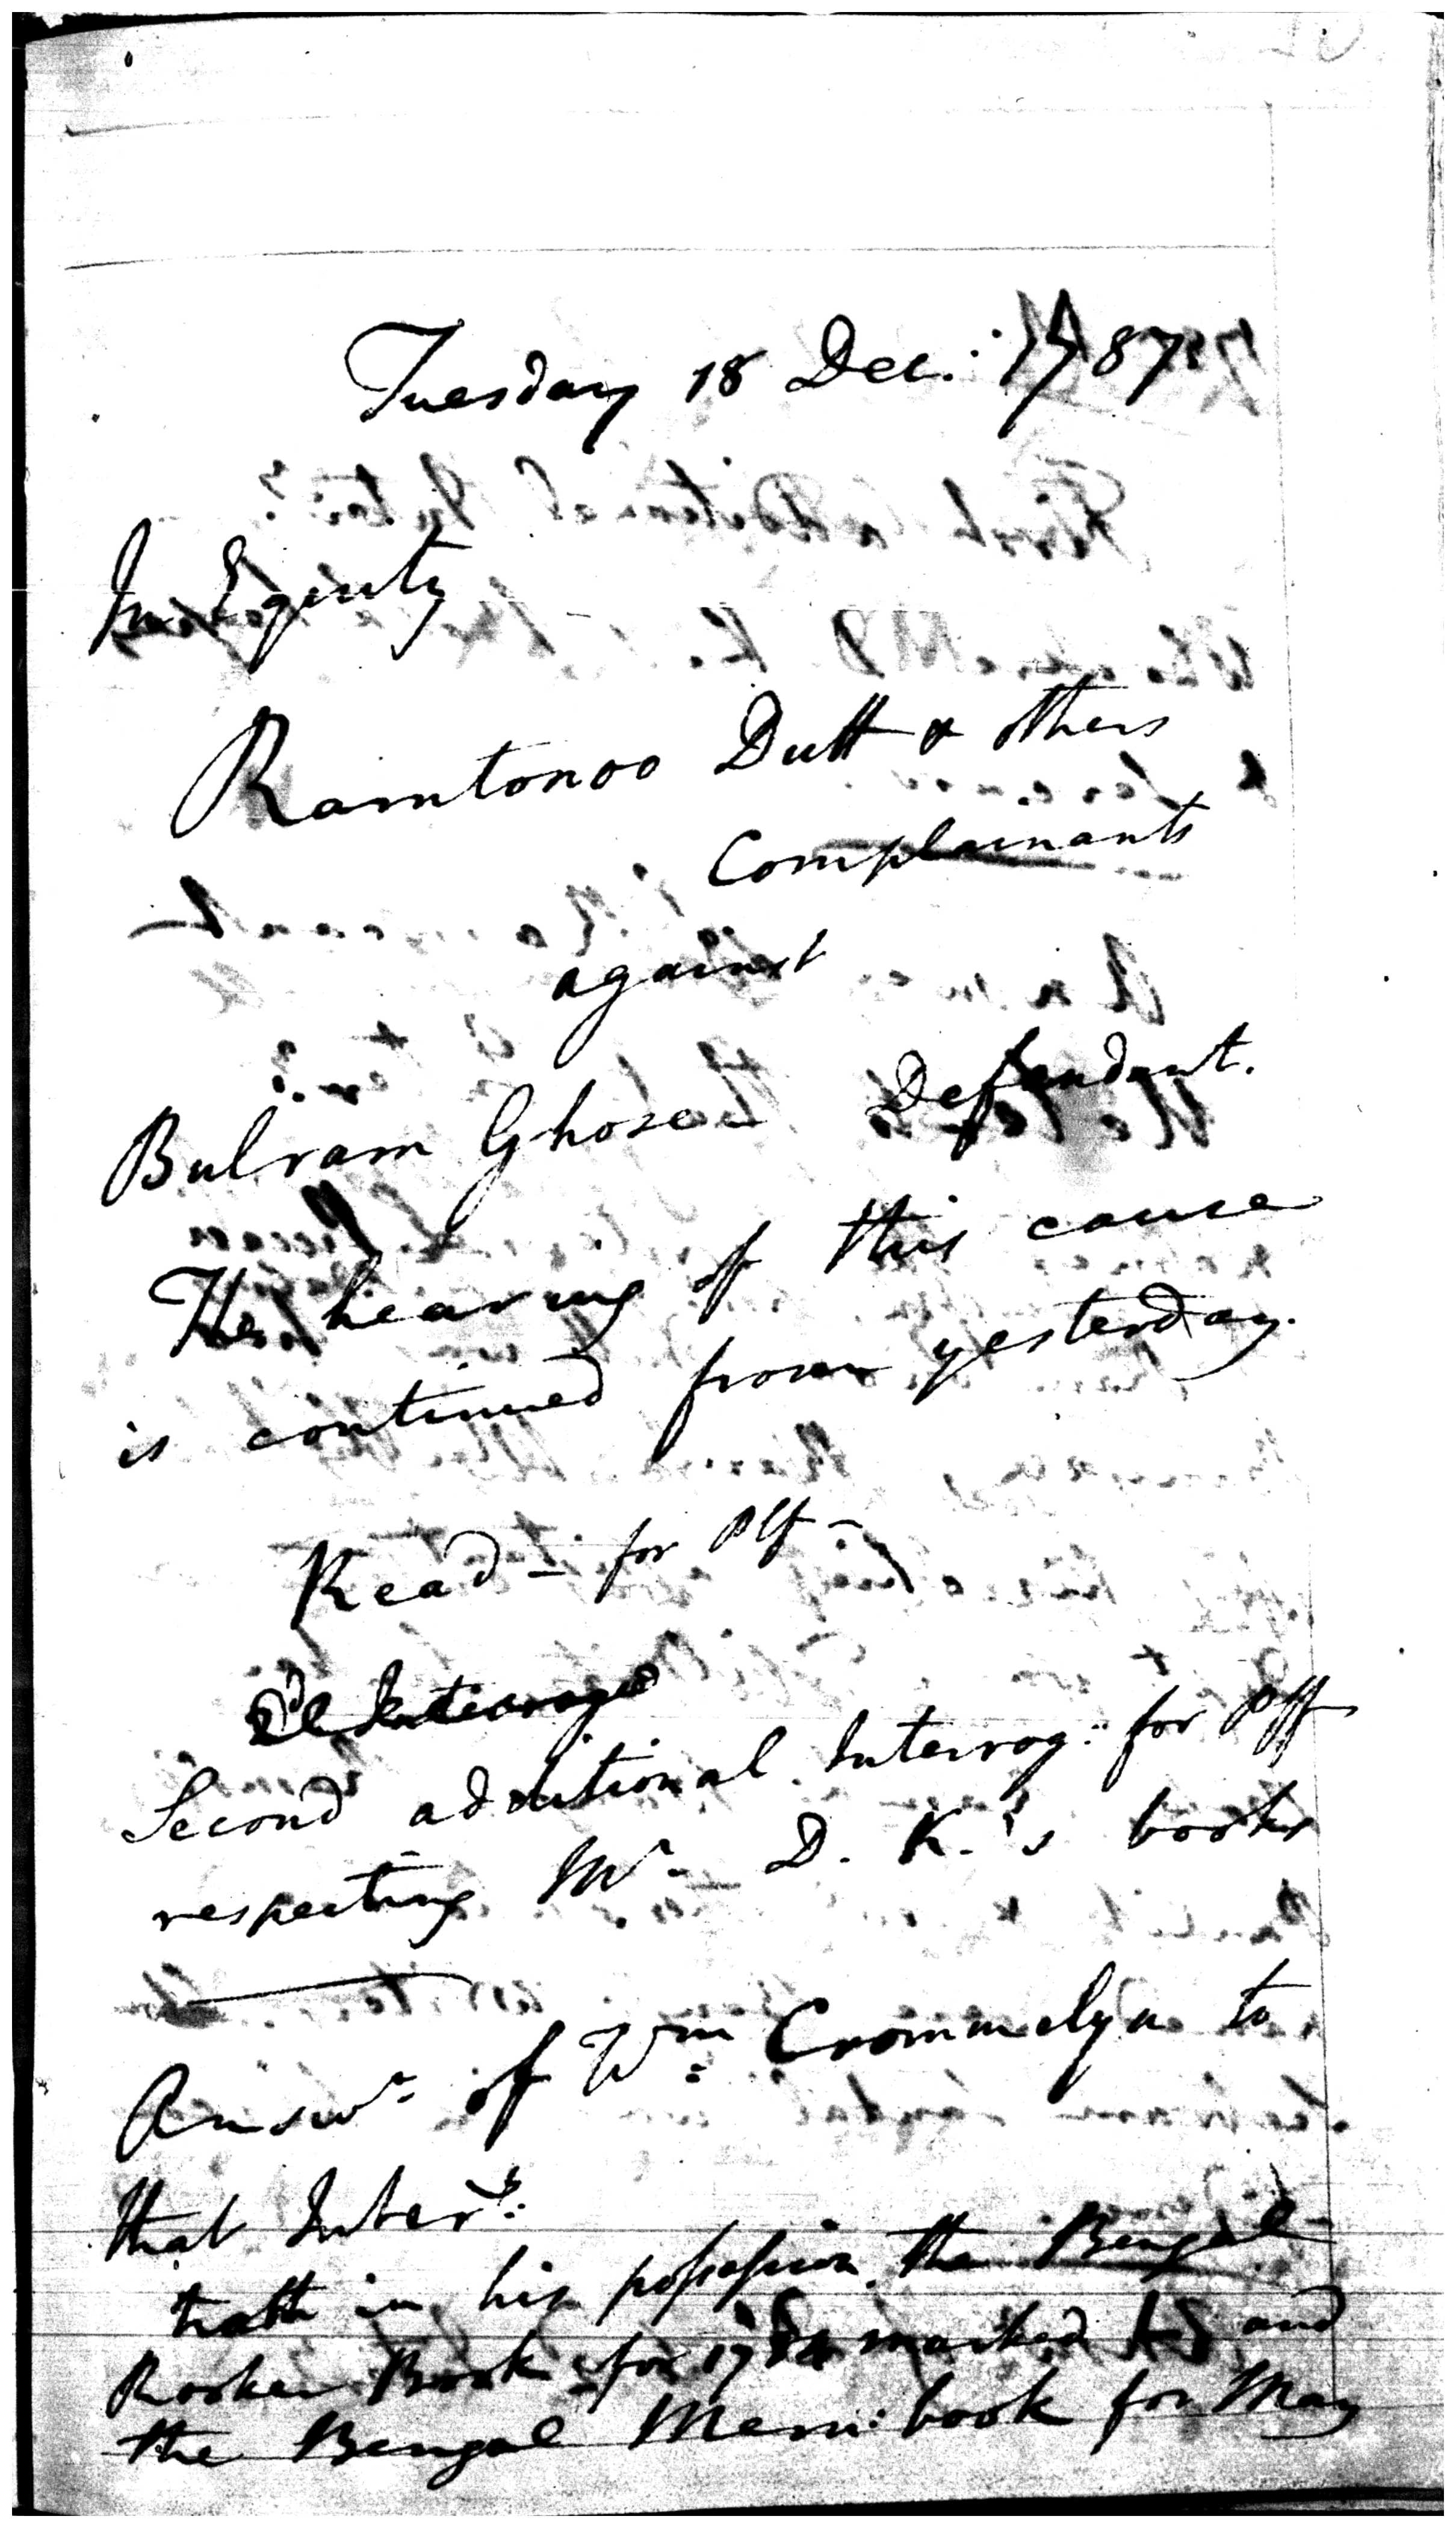 Tuesday 18 Dec: 1787
In Equity
Ramtonoo Dutt & others
Complainants
against
Bulram Ghose Defendant.
The hearing of this cause
is continued from yesterday.
Read - for Plf -
Second additional Interrog: for Plff
respecting Mr D. K.'s books
Answr of Wm Crommelyn to
that Interry:
hath in his possession the Bengal
Book for 1784 marked and
the Bengal Mem: book for May